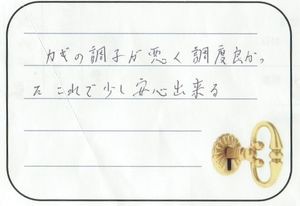 カギの調子が悪く調度良かっ
た これで少し安心出来る